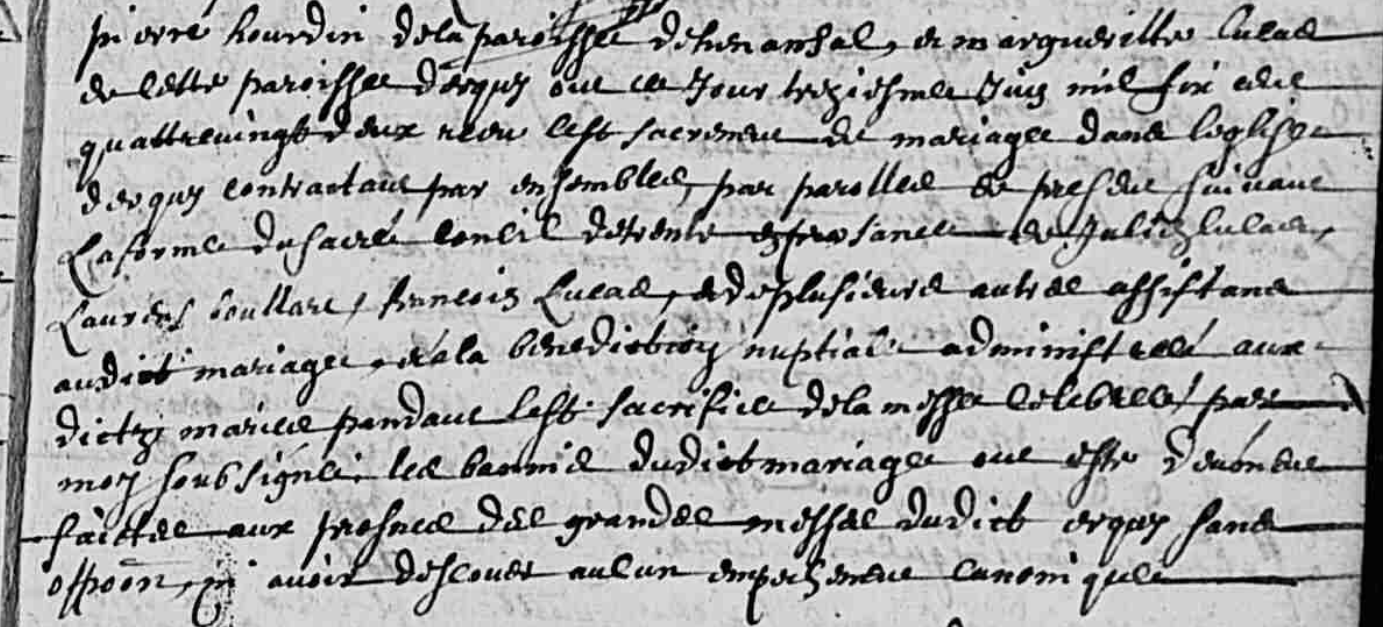 pierre hourdin de la paroisse de henansal, et margueritte lucas
de cette paroisse d'erquy ont ce Jour treziesme Juin mil six cens
quattrevingt deux receu le st sacrement de mariage dans leglise
derquy contractant par ensembles, par parolles de present suivant
La forme du sacré concil de trente de Julien lucas,
Laurens boullare, francois Lucas, et de plusieurs autres assistans
audict mariage, et la benediction nuptialle administreé aux
dicts mariés pandant le st sacrifice de la messe celebreé par
moy soubsigné. les bannies dudict mariage ont esté devûment
faictes aux prosnes des grandes messes dudict erquy sans
oppoôn, ny avoir descouvert aulcun empechement canonique